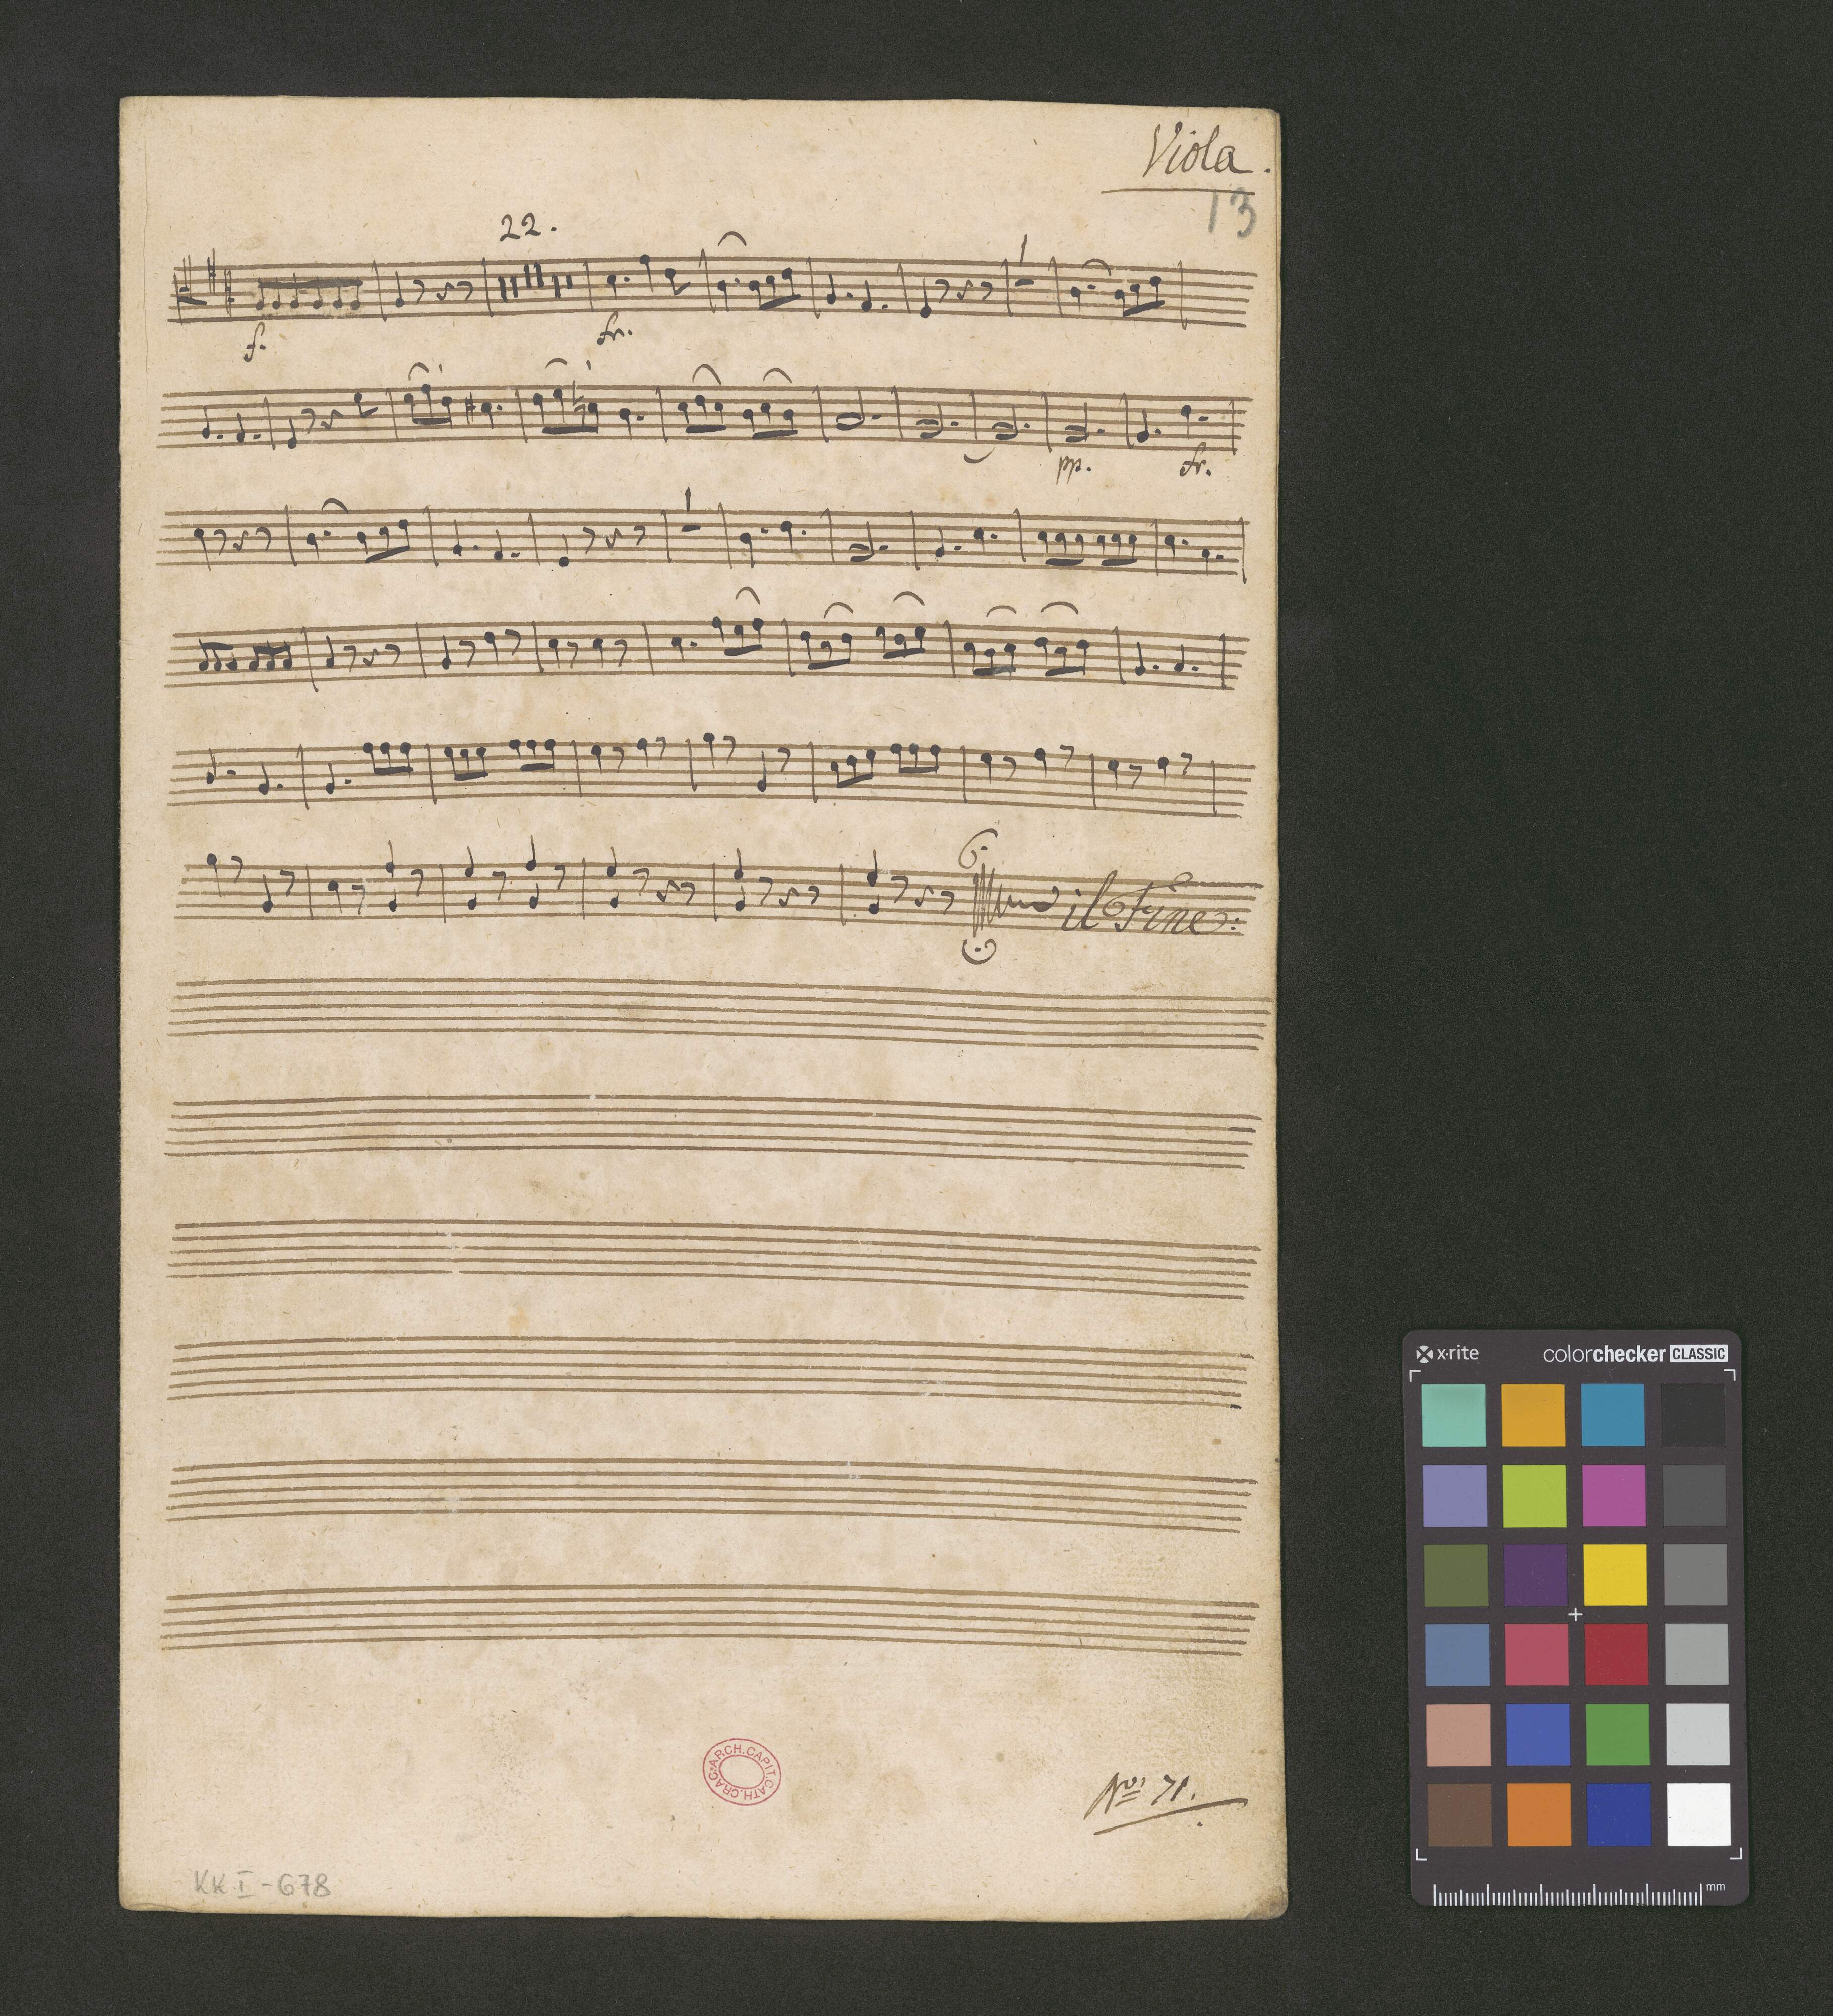 Viola.
13
22.
f.
fr.
pp.
fr.
il Fine:
ARCH.CAPIT.CATH.CRAC.
No: 71.
KK I-678
x·rite
colorchecker CLASSIC
mm